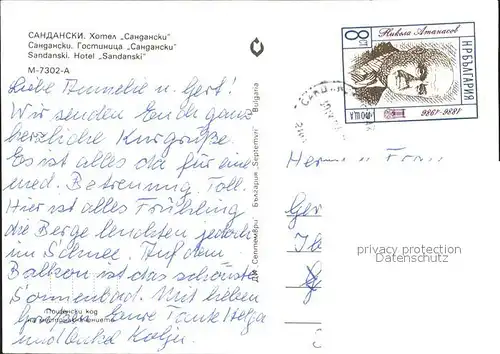 САНДАНСКИ. Хотел „Сандански"
Сандански. Гостиница „Сандански"
Sandanski. Hotel „Sandanski"
М-7302-А
Liebe Annelie u. Gert!
Wir senden Euch ganz
herzliche Kurgrüße.
Es ist alles da für eine
med. Betreuung. Toll.
Hier ist alles Frühling
die Berge leuchten jedoch
im Schnee. Auf dem
Balkon ist das schönste
Sonnenbad. Mit lieben
Grüßen Eure Tante Helga
und Onkel
Пощенски код
на местоназначението
ДИ „Септември" България „Septemvri" Bulgaria
8 ст
Никола Атанасов
НР БЪЛГАРИЯ
ПОЩА
1886-1986
Herrn u Frau
privacy protection
Datenschutz